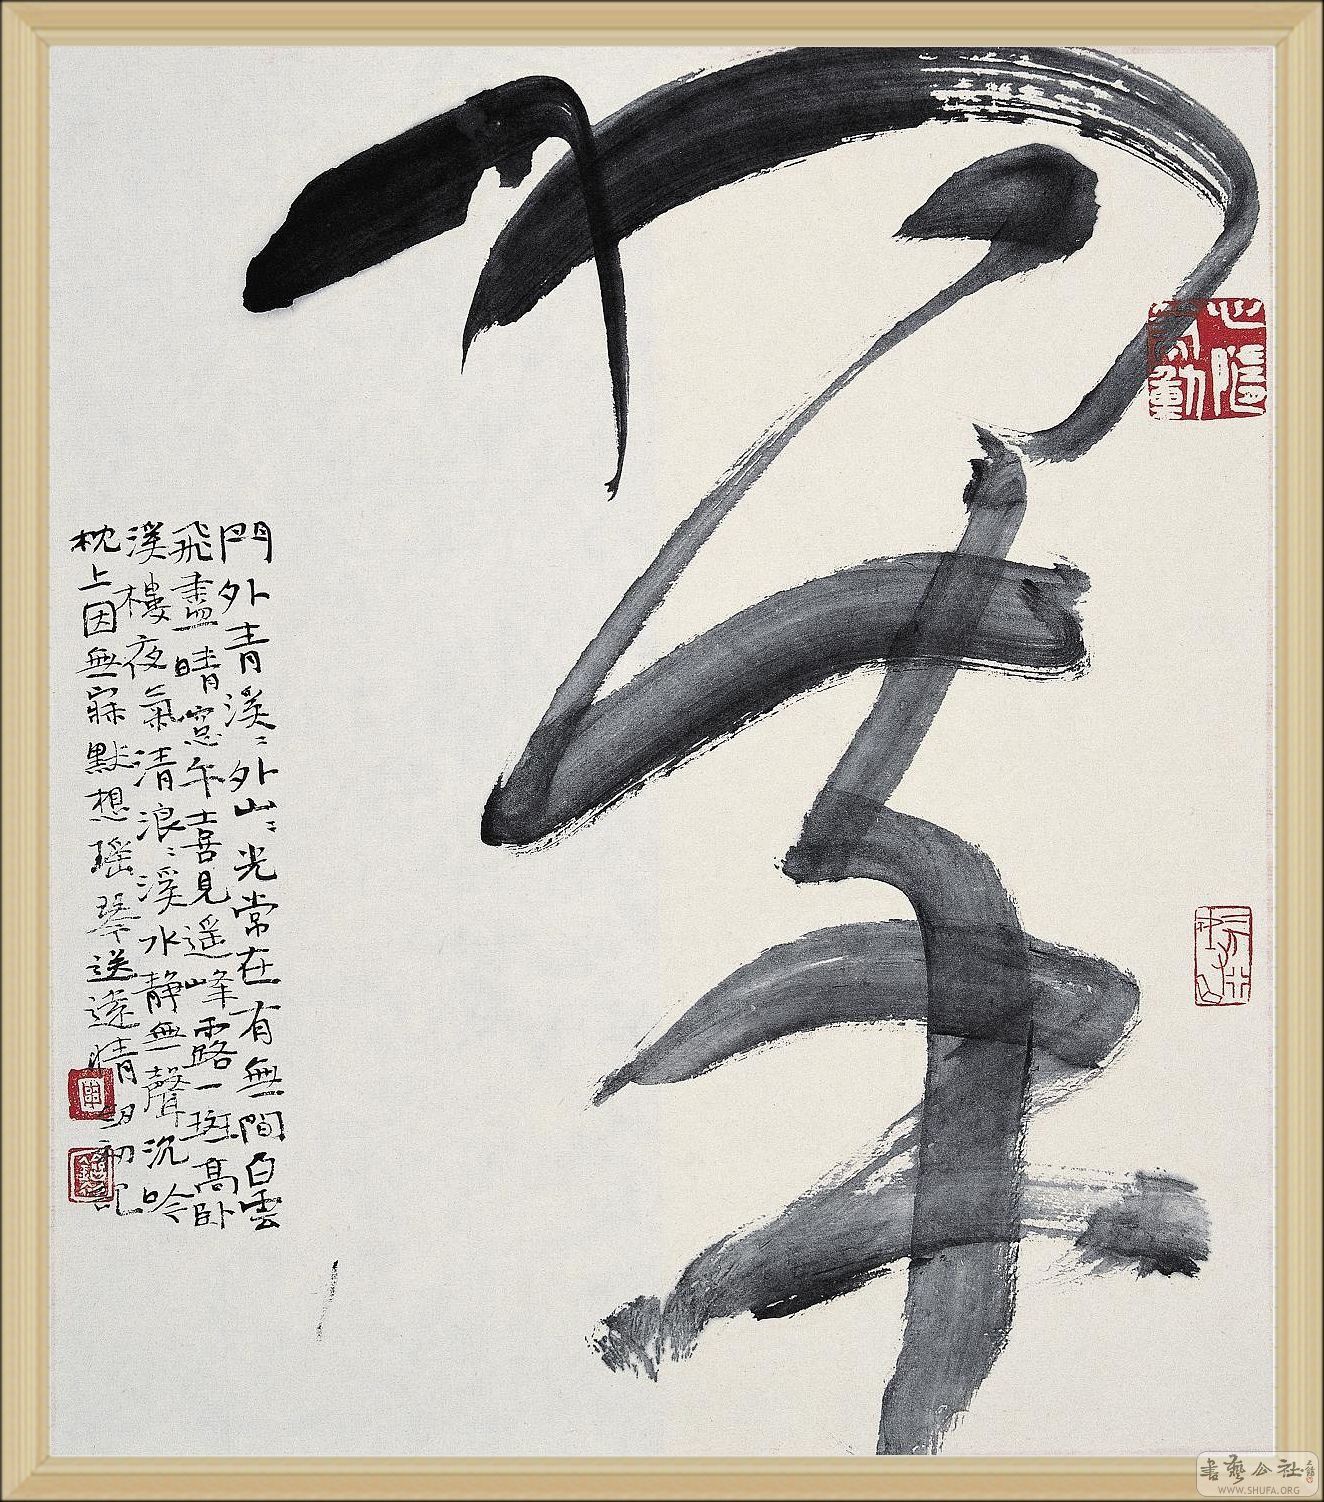 門外青溪〻外山〻光常在有無間白雲
飛盡晴窓午喜見遥峰露一斑高卧
溪樓夜氣清浪〻溪水静無聲沉吟
枕上因無寐默想瑶琴送遠情 初記
心隨
動
書藝公社
WWW.SHUFA.ORG